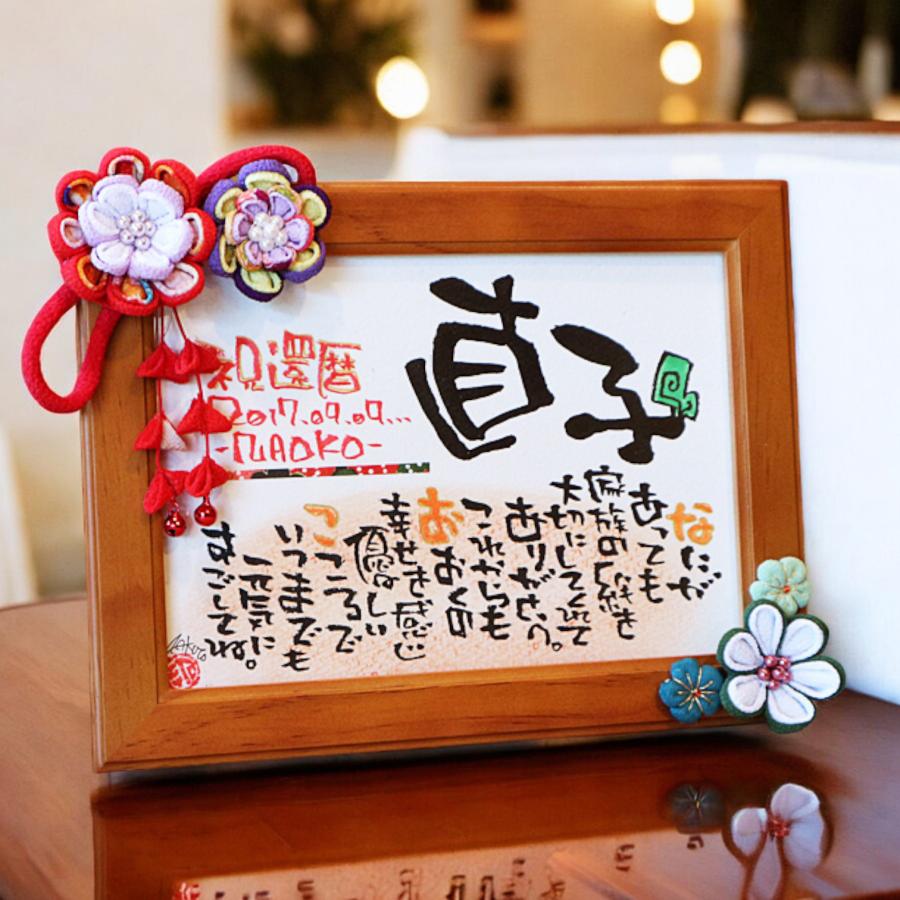 直子
祝還暦
2017.09.09...
-NAOKO-
なにが
あっても
家族の絆を
大切にしてくれて
ありがとう。
これからも
おおくの
幸せを感じ
優しい
こころで
いつまでも
元気に
すごしてね。